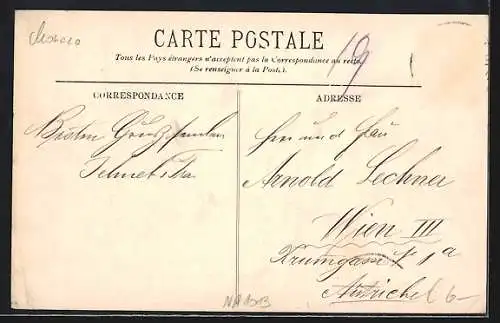 Monaco
CARTE POSTALE
19
Tous les Pays étrangers n'acceptent pas la Correspondance au recto.
(Se renseigner à la Poste).
CORRESPONDANCE
ADRESSE
Besten
Herr und Frau
Arnold Lechner
Wien III
Krumgasse 1a
Autriche
6-